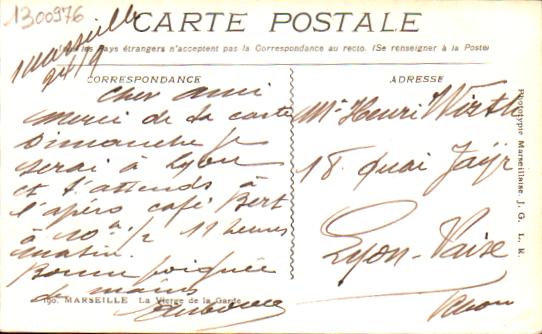 1300976
CARTE POSTALE
les pays étrangers n'acceptent pas la Correspondance au recto. (Se renseigner à la Poste
Marseille
CORRESPONDANCE
Cher ami
Merci de la carte
Dimanche je
serai à Lyon
et t'attends à
l'apéro café Bert
à 10 h 1/2 11 heures
matin.
Bonne poignée
de mains
190. MARSEILLE La Vierge de la Garde
ADRESSE
Mr Henri Wirth
18 quai Jaÿr
Lyon-Vaise
Rhône
Phototypie Marseillaise. J. G. L. R.